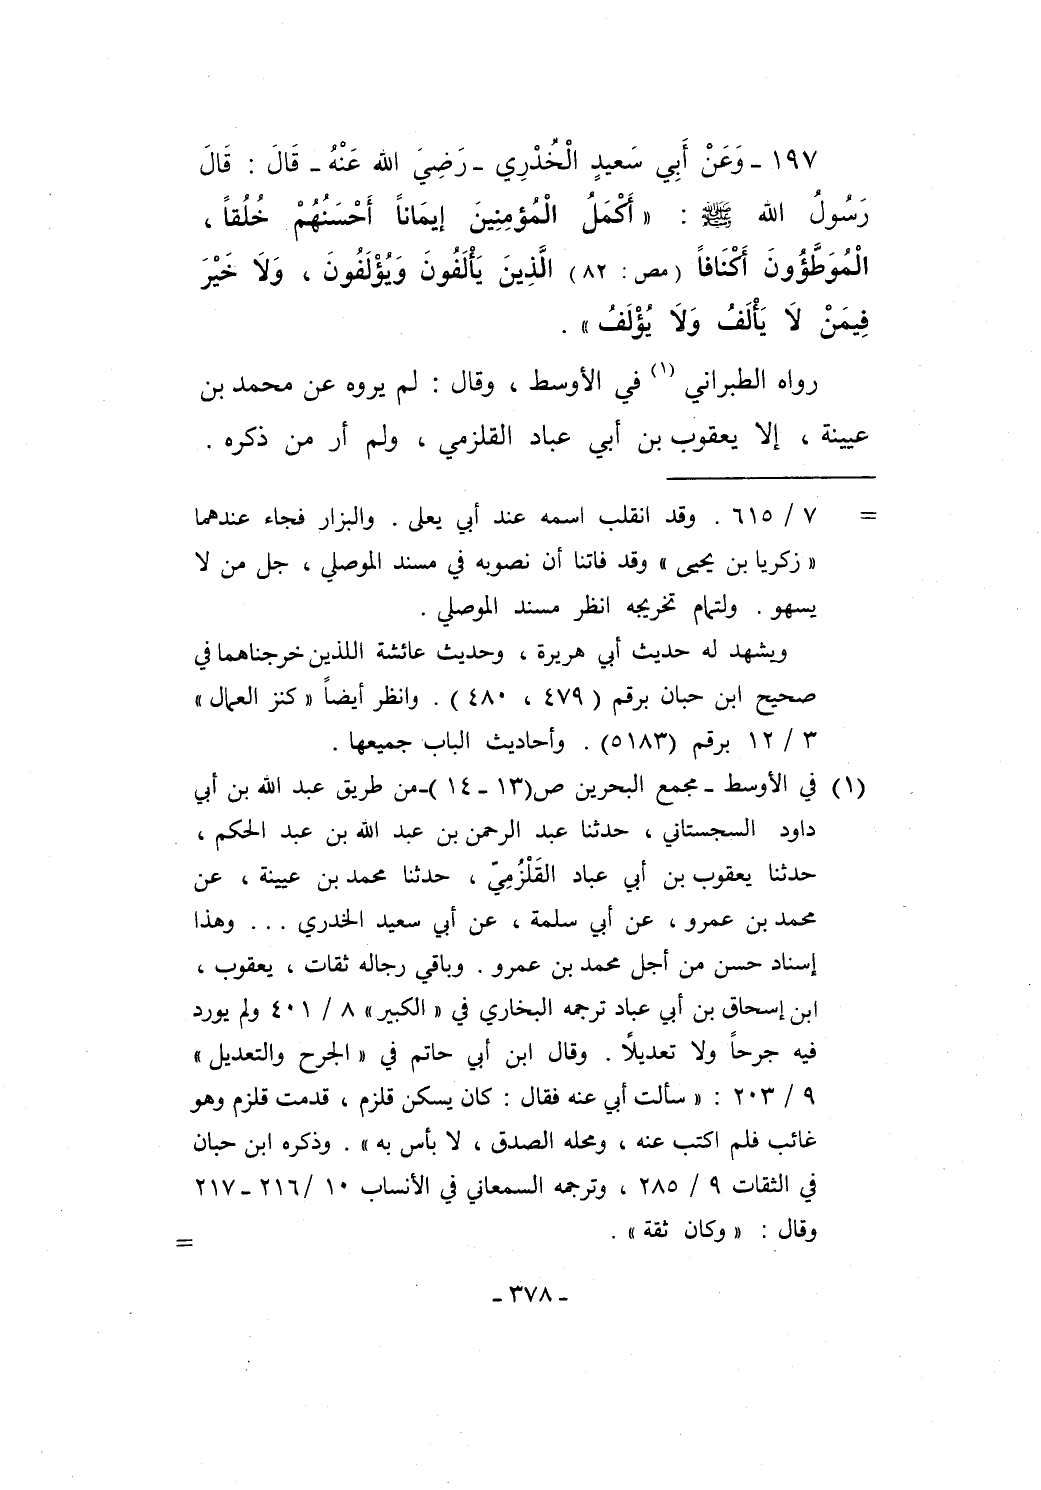 ١٩٧ ـ وَعَنْ أَبِي سَعيدٍ الْخُدْرِي ـ رَضِيَ الله عَنْهُ ـ قَالَ : قَالَ
رَسُولُ الله ﷺ : « أَكْمَلُ الْمُؤمِنِينَ إيمَاناً أَحْسَنُهُمْ خُلُقاً ،
الْمُوَطَّؤُونَ أَكْنَافاً (مص : ٨٢) الَّذِينَ يَأْلَفُونَ وَيُؤْلَفُونَ ، وَلَا خَيْرَ
فِيمَنْ لَا يَأْلَفُ وَلَا يُؤْلَفُ » .
رواه الطبراني (١) في الأوسط ، وقال : لم يروه عن محمد بن
عيينة ، إلا يعقوب بن أبي عباد القلزمي ، ولم أر من ذكره .
= ٧ / ٦١٥ . وقد انقلب اسمه عند أبي يعلى . والبزار فجاء عندهما
« زكريا بن يحيى » وقد فاتنا أن نصوبه في مسند الموصلي ، جل من لا
يسهو . ولتمام تخريجه انظر مسند الموصلي .
ويشهد له حديث أبي هريرة ، وحديث عائشة اللذين خرجناهما في
صحيح ابن حبان برقم ( ٤٧٩ ، ٤٨٠ ) . وانظر أيضاً « كنز العمال »
٣ / ١٢ برقم (٥١٨٣) . وأحاديث الباب جميعها .
(١) في الأوسط ـ مجمع البحرين ص(١٣ ـ ١٤ )ـ من طريق عبد الله بن أبي
داود السجستاني ، حدثنا عبد الرحمن بن عبد الله بن عبد الحكم ،
حدثنا يعقوب بن أبي عباد القَلْزُمِيّ ، حدثنا محمد بن عيينة ، عن
محمد بن عمرو ، عن أبي سلمة ، عن أبي سعيد الخدري . . . وهذا
إسناد حسن من أجل محمد بن عمرو . وباقي رجاله ثقات ، يعقوب ،
ابن إسحاق بن أبي عباد ترجمه البخاري في « الكبير » ٨ / ٤٠١ ولم يورد
فيه جرحاً ولا تعديلًا . وقال ابن أبي حاتم في « الجرح والتعديل »
٩ / ٢٠٣ : « سألت أبي عنه فقال : كان يسكن قلزم ، قدمت قلزم وهو
غائب فلم اكتب عنه ، ومحله الصدق ، لا بأس به » . وذكره ابن حبان
في الثقات ٩ / ٢٨٥ ، وترجمه السمعاني في الأنساب ١٠ /٢١٦ ـ ٢١٧
وقال : « وكان ثقة » .
=
ـ ٣٧٨ ـ